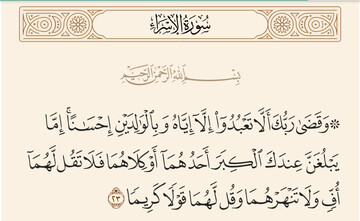 سُورَةُ الإِسْرَاءِ
بِسْمِ ٱللَّهِ ٱلرَّحْمَٰنِ ٱلرَّحِيمِ
۞ وَقَضَىٰ رَبُّكَ أَلَّا تَعْبُدُوٓا۟ إِلَّآ إِيَّاهُ وَبِٱلْوَٰلِدَيْنِ إِحْسَٰنًا ۚ إِمَّا
يَبْلُغَنَّ عِندَكَ ٱلْكِبَرَ أَحَدُهُمَآ أَوْ كِلَاهُمَا فَلَا تَقُل لَّهُمَآ
أُفٍّ وَلَا تَنْهَرْهُمَا وَقُل لَّهُمَا قَوْلًا كَرِيمًا ٢٣